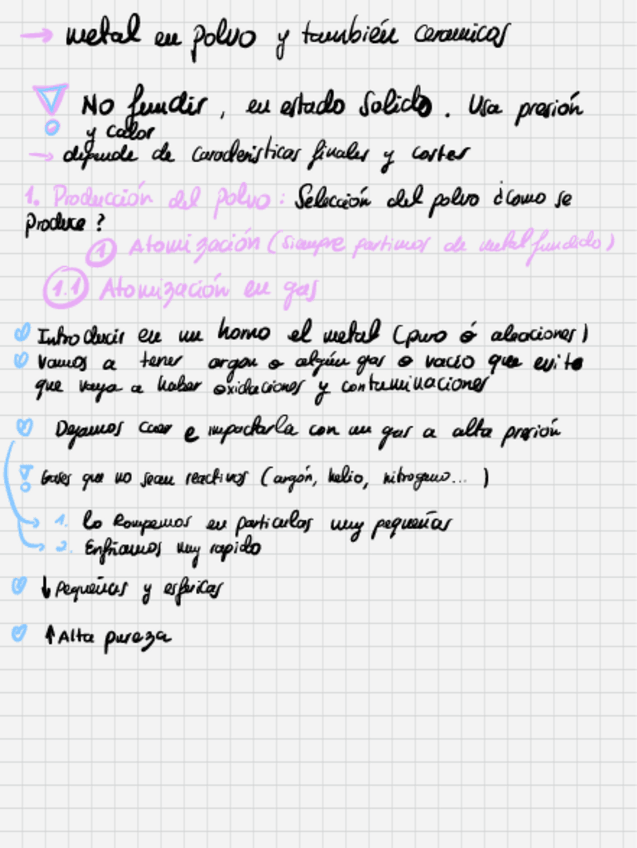 → metal en polvo y también ceramicas
No fundir, en estado Solido. Usa presión
y calor
→ depende de características finales y costes
1. Producción del polvo: Selección del polvo ¿Como se
Produce?
1 Atomización (siempre partimos de metal fundido)
1.1 Atomización en gas
Introducir en un horno el metal (puro ó aleaciones)
Vamos a tener argon o algún gas o vacio que evite
que vaya a haber oxidaciones y contaminaciones
Dejamos caer e impactarla con un gas a alta presión
Gases que no sean reactivos (argón, helio, nitrogeno...)
1. lo Rompemos en particulas muy pequeñas
2. Enfriamos muy rapido
↓ Pequeñas y esfericas
↑ Alta pureza